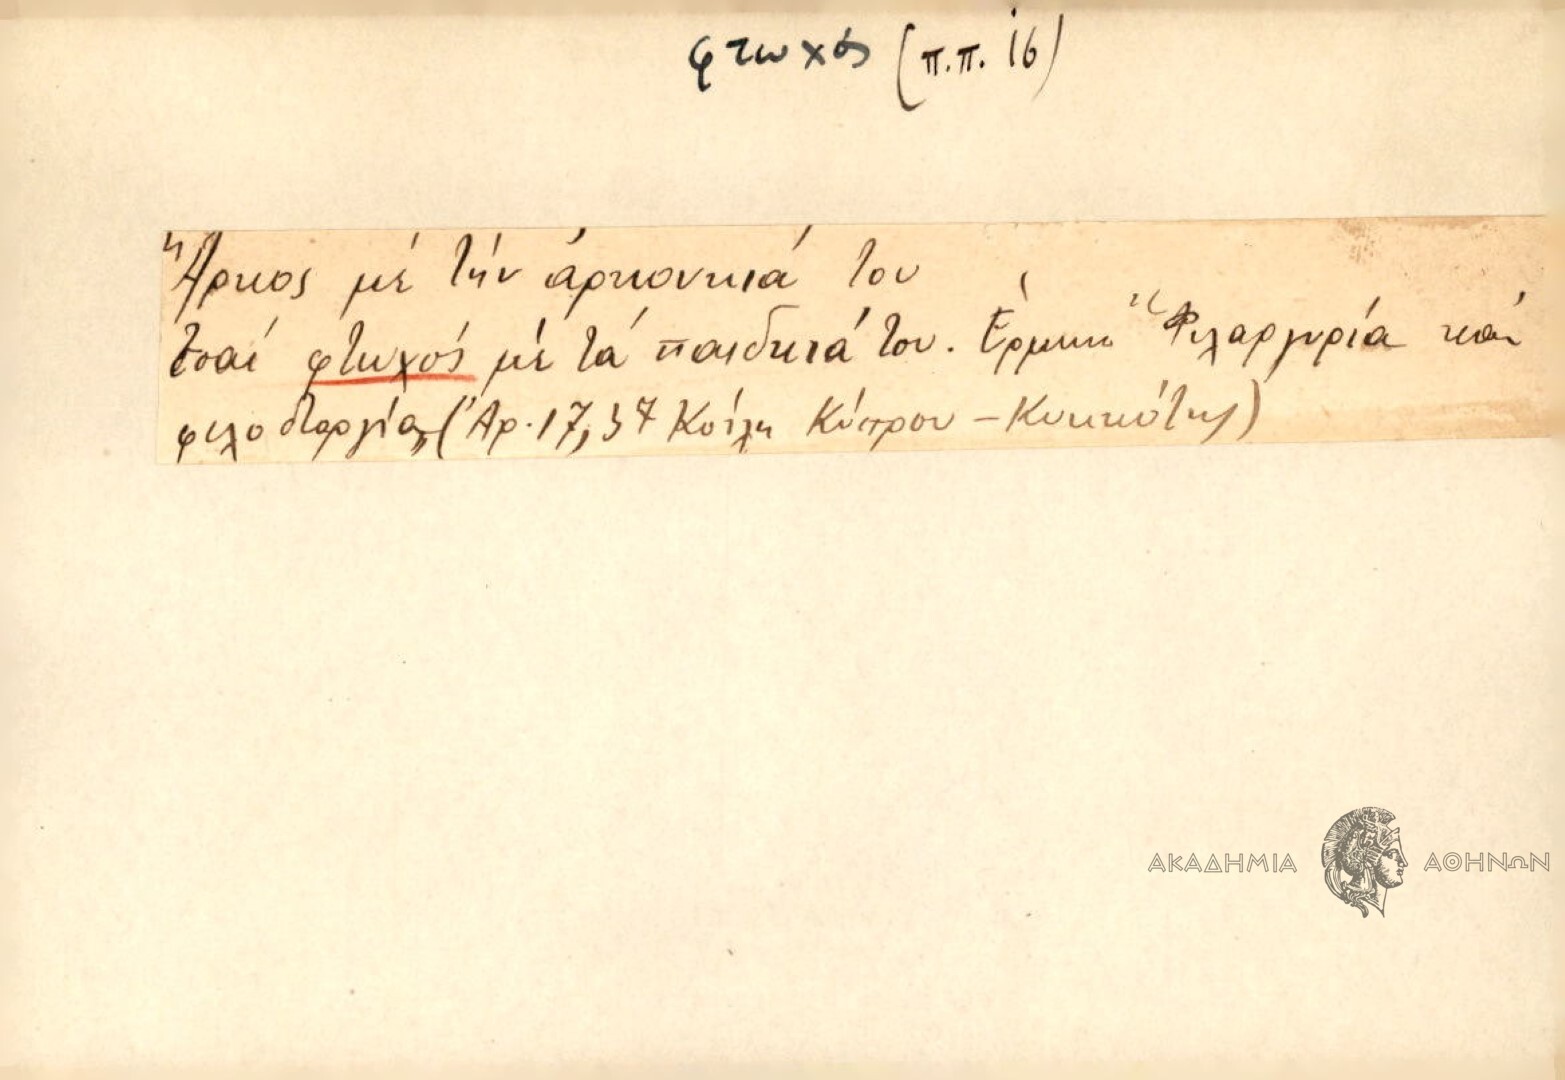 φτωχός (π.π. 16)
Ἄρκος μέ τήν ἀρκοντιά του
τσαί φτωχός μέ τά παιδκιά του. Ἑρμην "Φιλαργυρία καί
φιλοστοργία" (Ἀρ. 17, 37 Κοίλη Κύπρου – Κυκκώτης)
ΑΚΑΔΗΜΙΑ ΑΘΗΝΩΝ